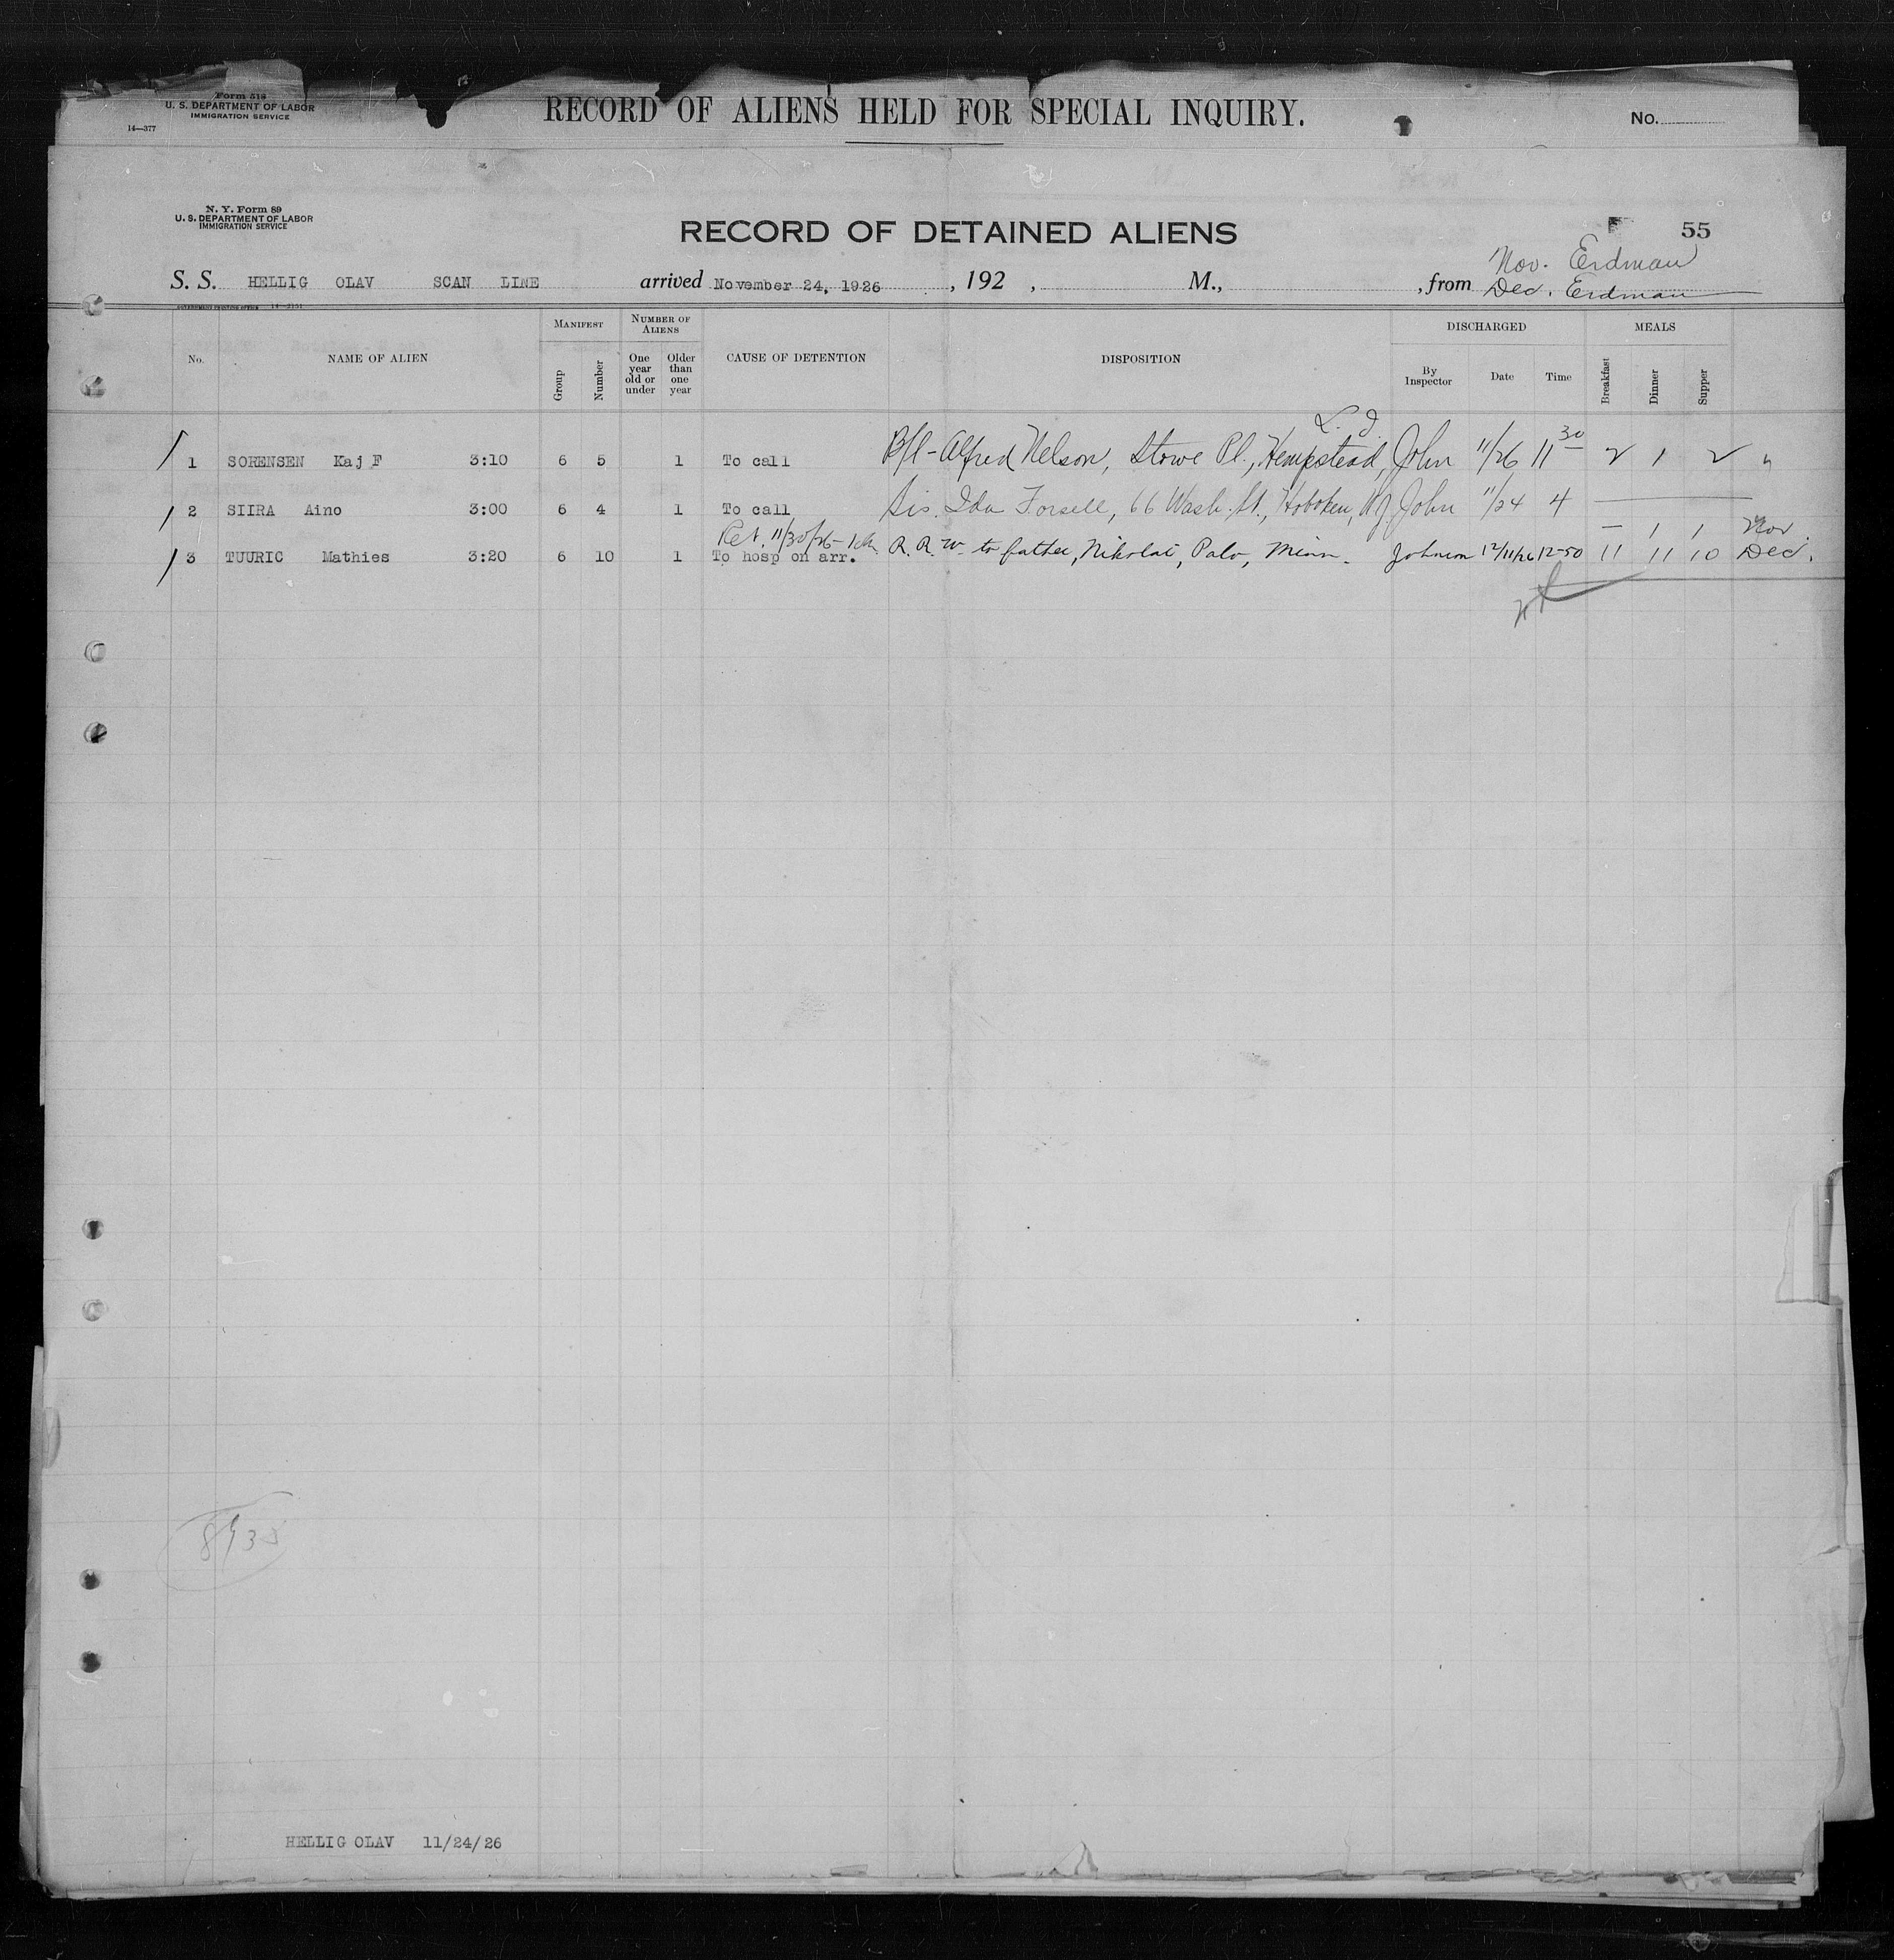 Form 518
U. S. DEPARTMENT OF LABOR
IMMIGRATION SERVICE
14—377
RECORD OF ALIENS HELD FOR SPECIAL INQUIRY.
No.
N. Y. Form 89
U. S. DEPARTMENT OF LABOR
IMMIGRATION SERVICE
RECORD OF DETAINED ALIENS
55
Nov. Erdman
S. S. HELLIG OLAV SCAN LINE arrived November 24, 1926 , 192 , M., , from Dec. Erdman
GOVERNMENT PRINTING OFFICE 14—3151
No. NAME OF ALIEN MANIFEST Group Number NUMBER OF ALIENS One year old or under Older than one year CAUSE OF DETENTION DISPOSITION DISCHARGED By Inspector Date Time MEALS Breakfast Dinner Supper
L. I.
1 SORENSEN Kaj F 3:10 6 5 1 To call B/l - Alfred Nelson, Stowe Pl., Hempstead, John 11/26 11 30 2 1 2 "
2 SIIRA Aino 3:00 6 4 1 To call Sis. Ida Forsell, 66 Wash. St., Hoboken, NJ John 11/24 4 —
Ret. 11/30/26 — 1 1 Nov.
3 TUURIC Mathies 3:20 6 10 1 To hosp on arr. R. R. W. to father, Nikolai, Palo, Minn. Johnson 12/11/26 12-50 11 11 10 Dec.
HELLIG OLAV 11/24/26